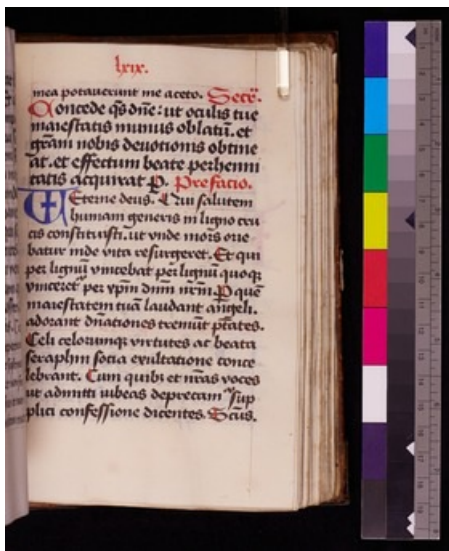 lxix.
mea potaverunt me aceto. Secr̄.
Concede qs̄ dn̄e: ut oculis tue
maiestatis munus oblatū. et
grām nobis devotionis obtine
at. et effectum beate perhenni
tatis acquirat p. Prefacio.
Eterne deus. Qui salutem
humani generis in ligno cru
cis constituisti. ut vnde mors orie
batur inde vita resurgeret. Et qui
per lignū vincebat per lignū quoqꝫ
vinceret per xp̄m dn̄m nr̄m. P quē
maiestatem tuā laudant angeli.
adorant dn̄ationes tremūt p̄tates.
Celi celorumqꝫ virtutes ac beata
seraphin socia exultatione conce
lebrant. Cum quibꝰ et nr̄as voces
ut admitti iubeas deprecam᷑ sup
plici confessione dicentes. Sc̄us.